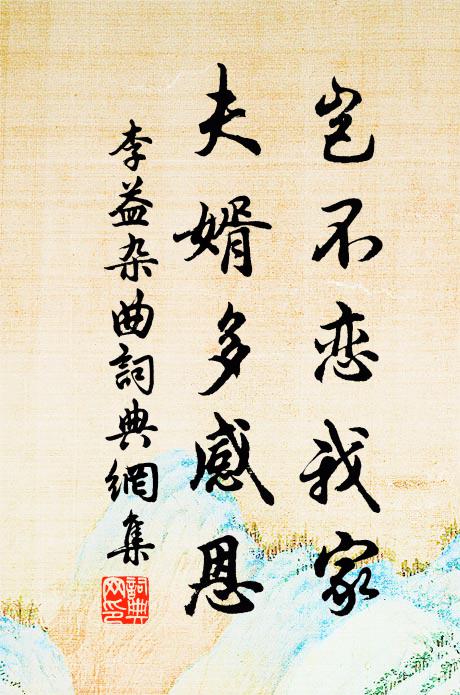 岂不恋我家
夫婿多感恩
李益杂曲詞典網集
詞典
网印